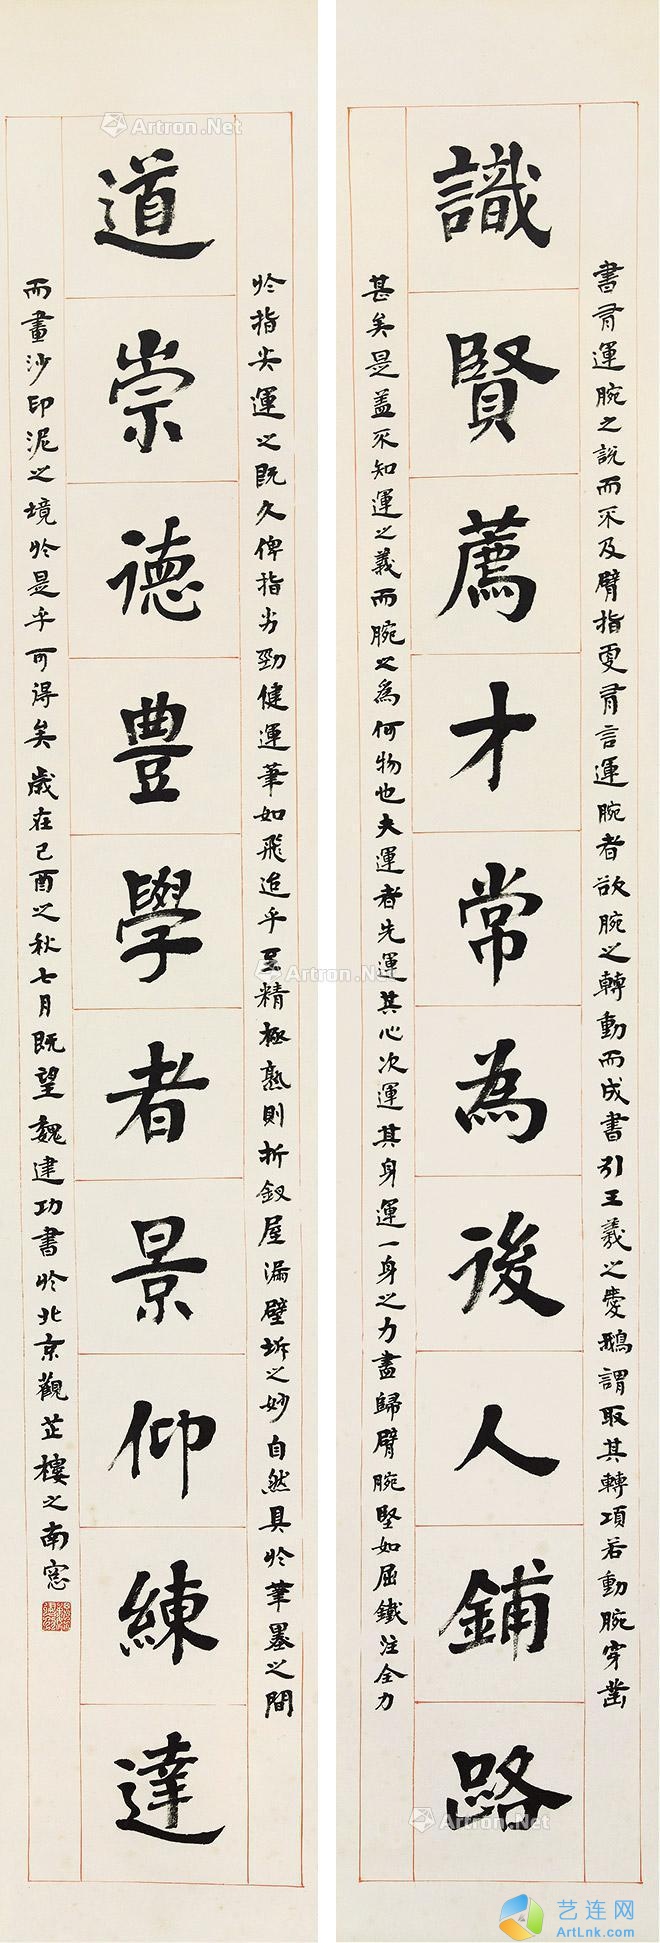 識賢薦才常為後人鋪路
道崇德豊學者景仰練達
書有運腕之說而不及臂指更有言運腕者欲腕之轉動而成書引王羲之愛鵝謂取其轉項若動腕穿凿
甚矣是蓋不知運之義而腕之為何物也夫運者先運其心次運其身運一身之力盡歸臂腕堅如屈鐵注全力
於指尖運之既久俾指力勁健運筆如飛迨乎至精極熟則折釵屋漏壁坼之妙自然具於筆墨之間
而畫沙印泥之境於是乎可得矣歲在己酉之秋七月既望魏建功書於北京觀芷樓之南窓
Artron.Net
Artron.Net
Artron.Net
Artron.Net
艺连网
ArtLnk.Com